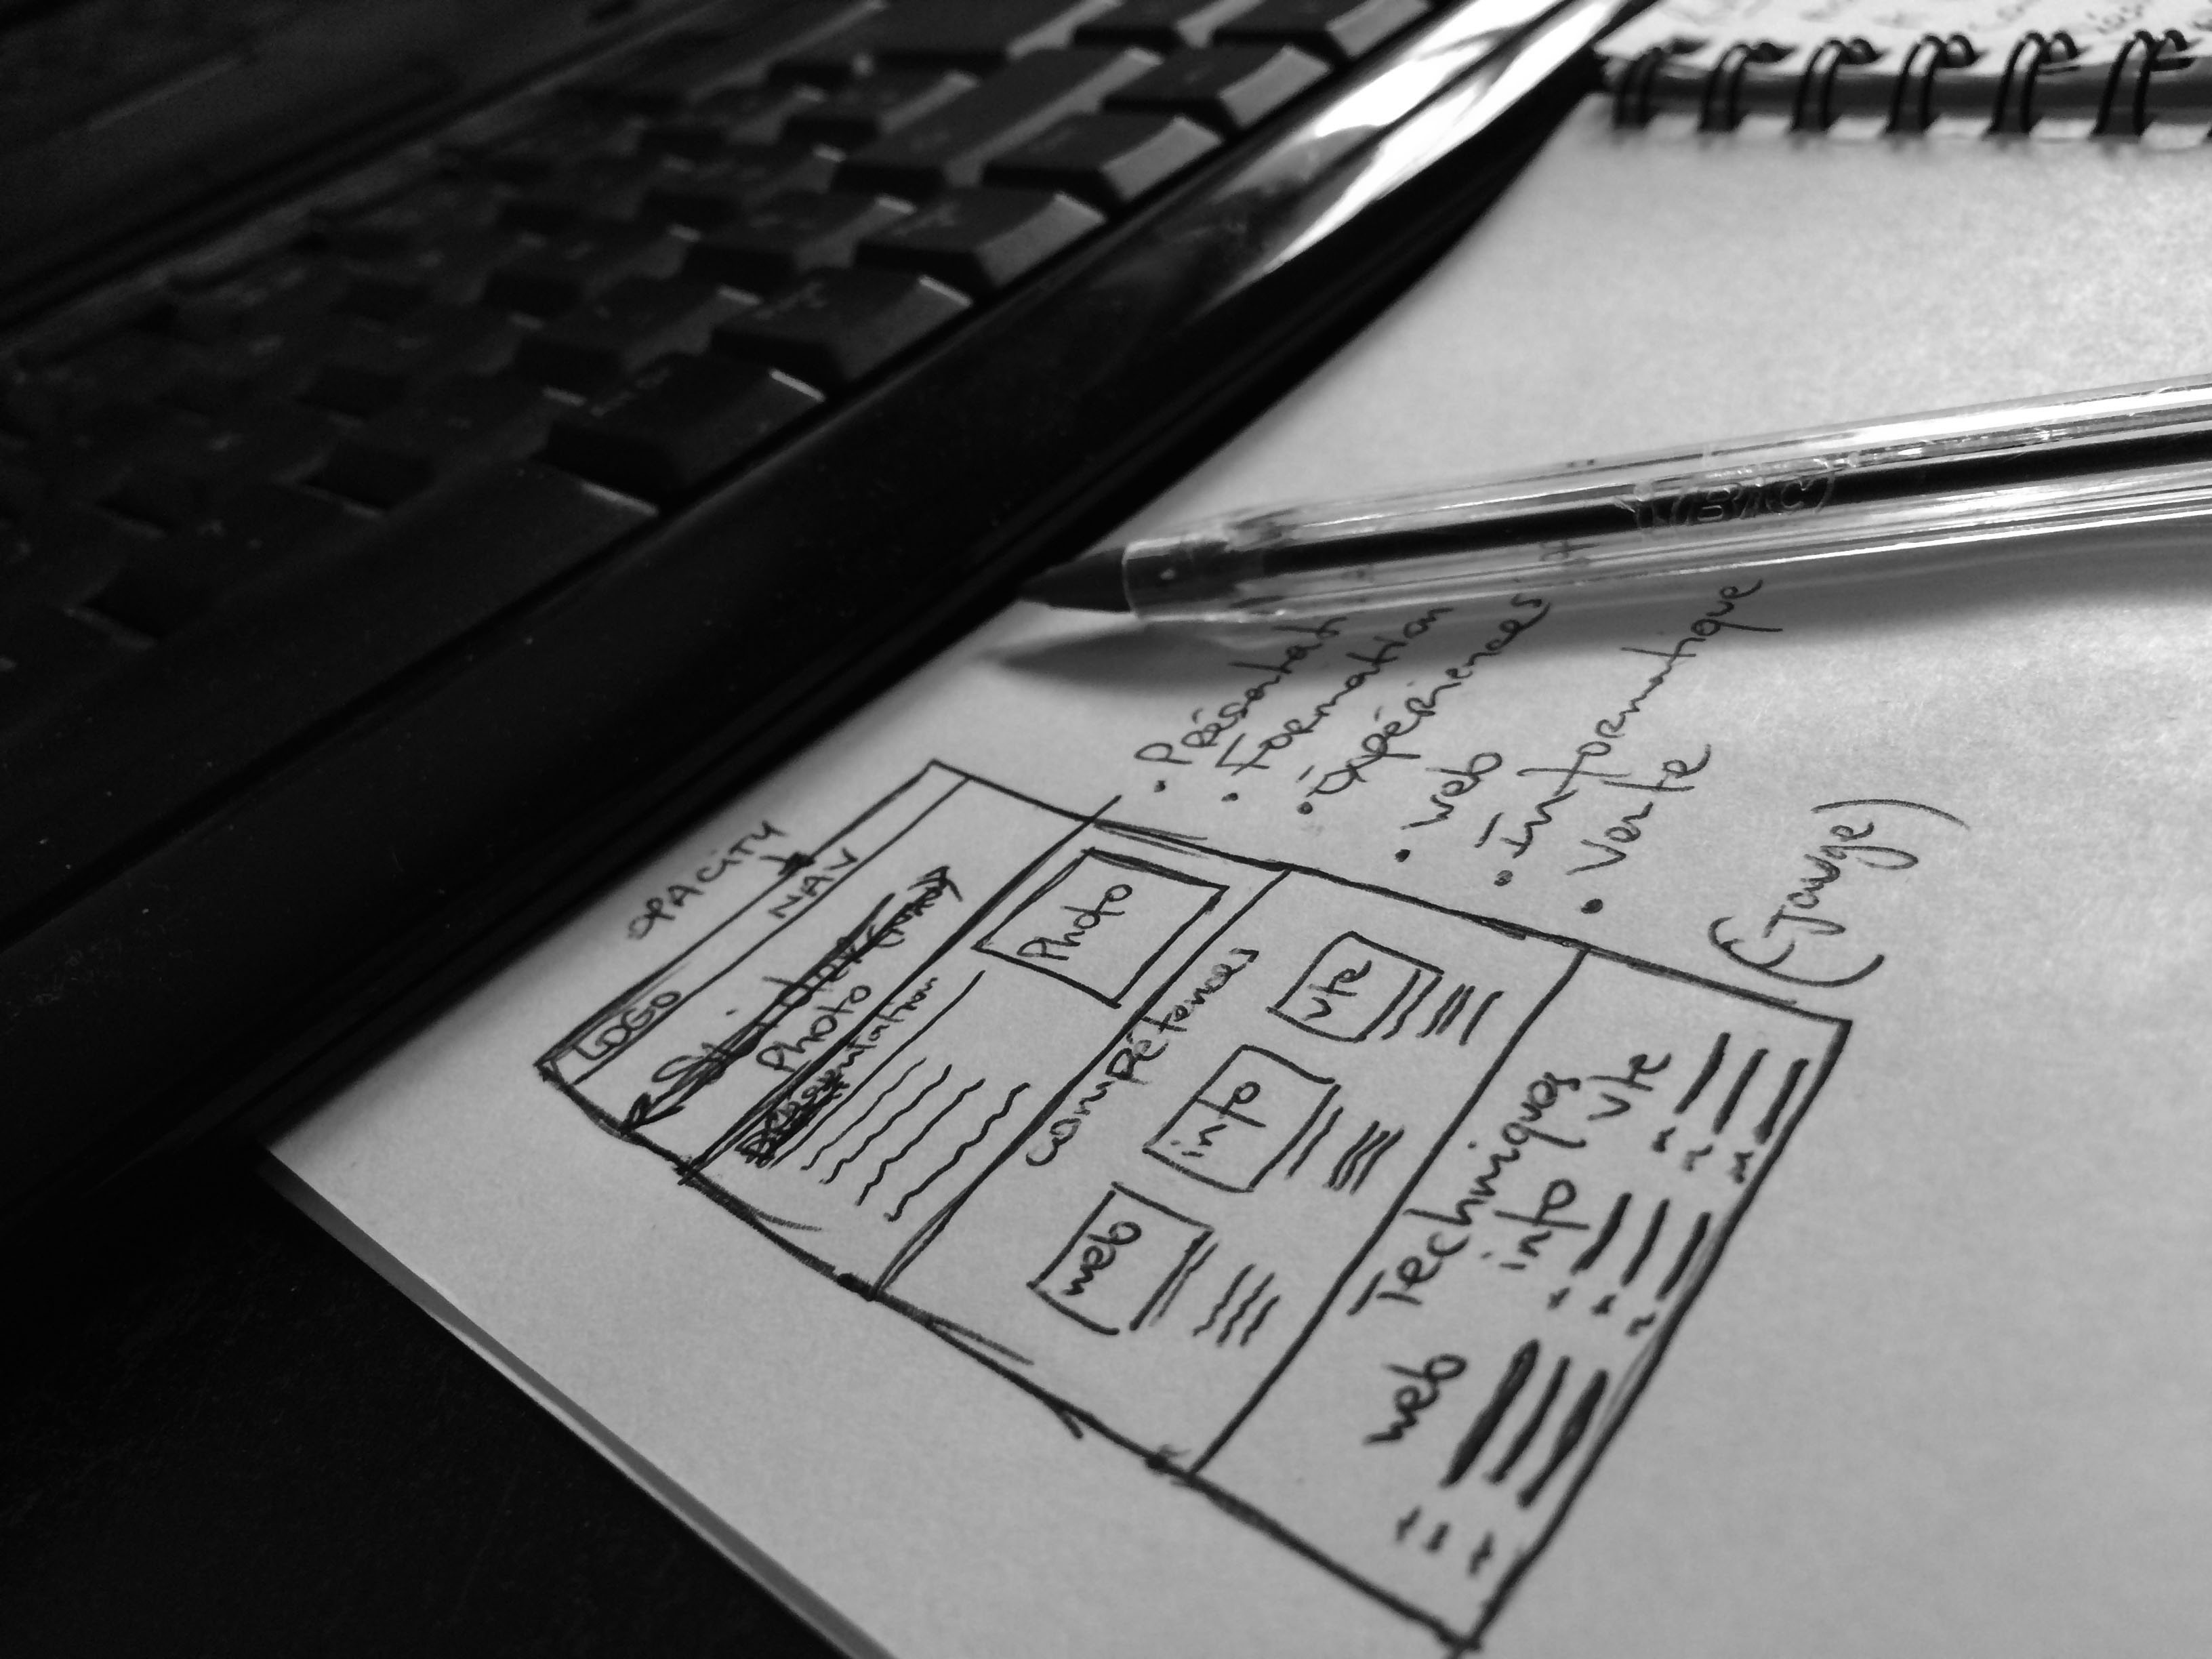 OPACITY
LOGO NAV
Photo
Présentation
Photo
Compétences
web info vte
Techniques
web info vte
• Présentati
• Formation
• Expériences
• web
• Informatique
• Vente
(Jauge)
BIC